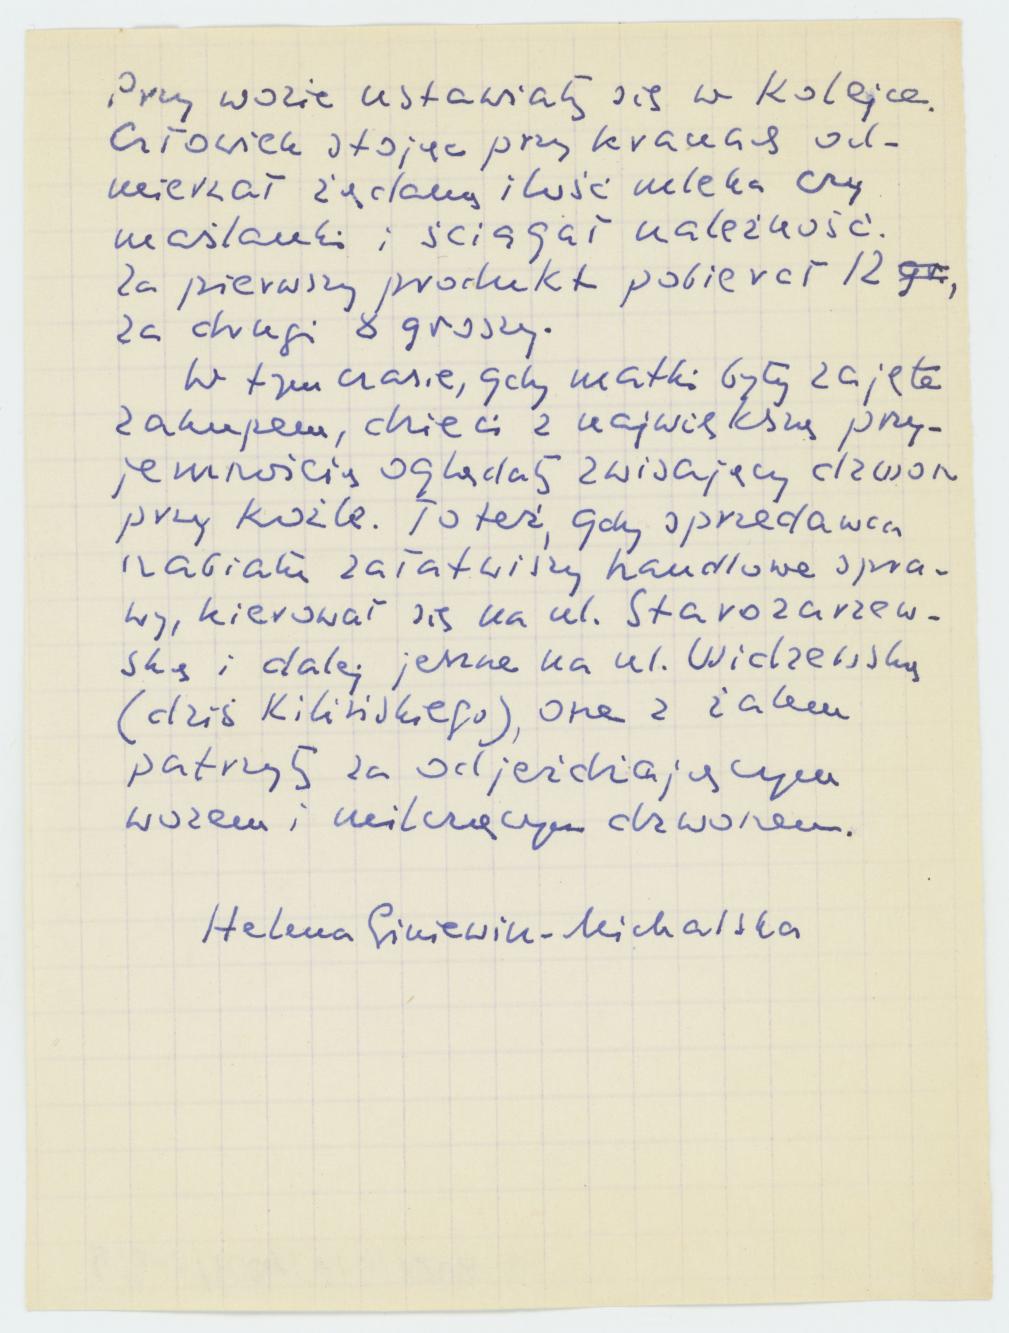 Przy wozie ustawiały się w kolejce.
Człowiek stojąc przy kranach od-
mierzał żądaną ilość mleka czy
maślanki i ściągał należność.
Za pierwszy produkt pobierał 12 gr,
za drugi 8 groszy.
W tym czasie, gdy matki były zajęte
zakupem, dzieci z największą przy-
jemnością oglądały zwisający dzwon
przy koźle. Toteż, gdy sprzedawca
nabiału załatwiszy handlowe spra-
wy, kierował się na ul. Starozarzew-
ską i dalej jeszcze na ul. Widzewską
(dziś Kilińskiego), one z żalem
patrzyły za odjeżdżającym
wozem i milczącym dzwonem.
Helena -Michalska